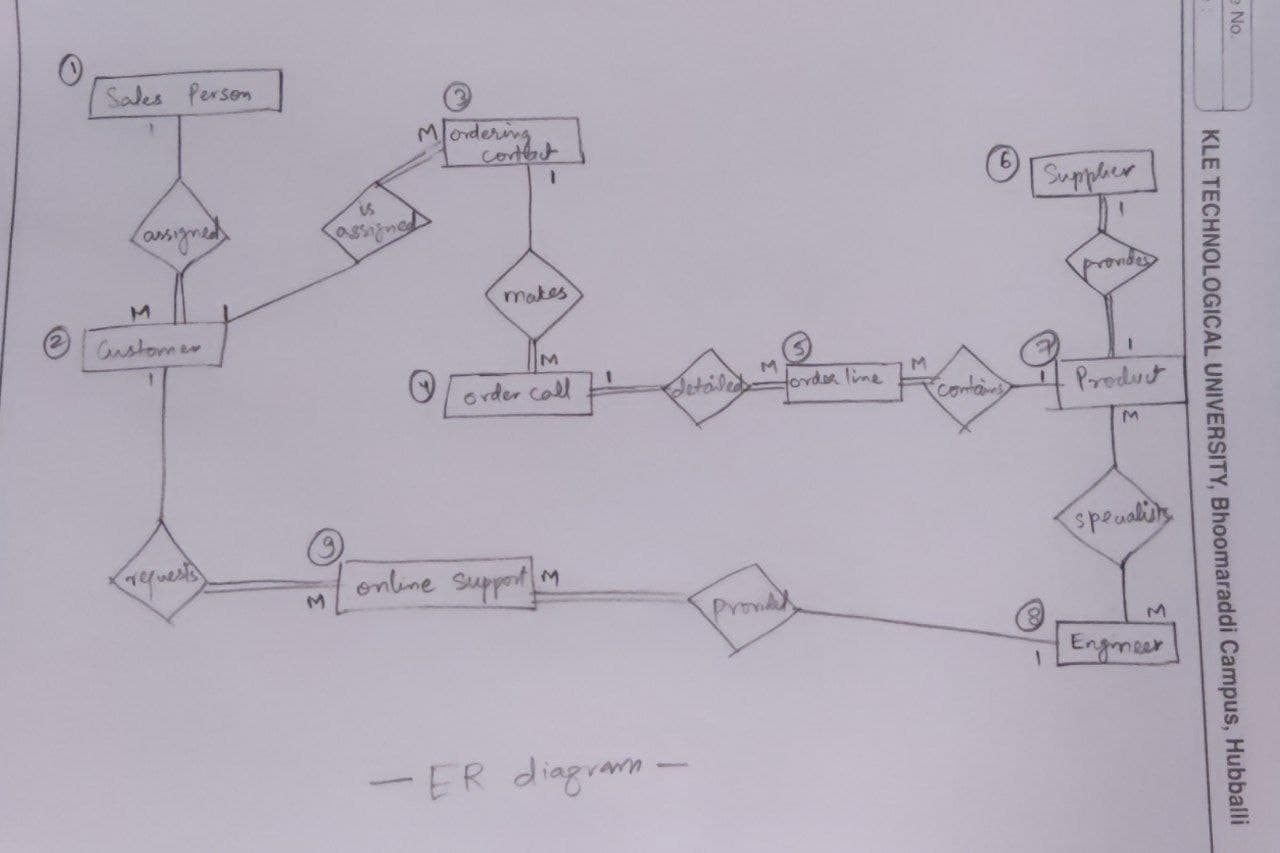 e No.
KLE TECHNOLOGICAL UNIVERSITY, Bhoomaraddi Campus, Hubballi
1
Sales Person
1
assigned
M
2
Customer
1
1
is
assigned
M
3
ordering
contact
1
makes
M
4
order call
1
detailed
M
5
order line
M
contains
1
6
Supplier
1
provides
1
7
Product
M
specialists
M
8
Engineer
1
provided
M
9
online Support
M
requests
- ER diagram -